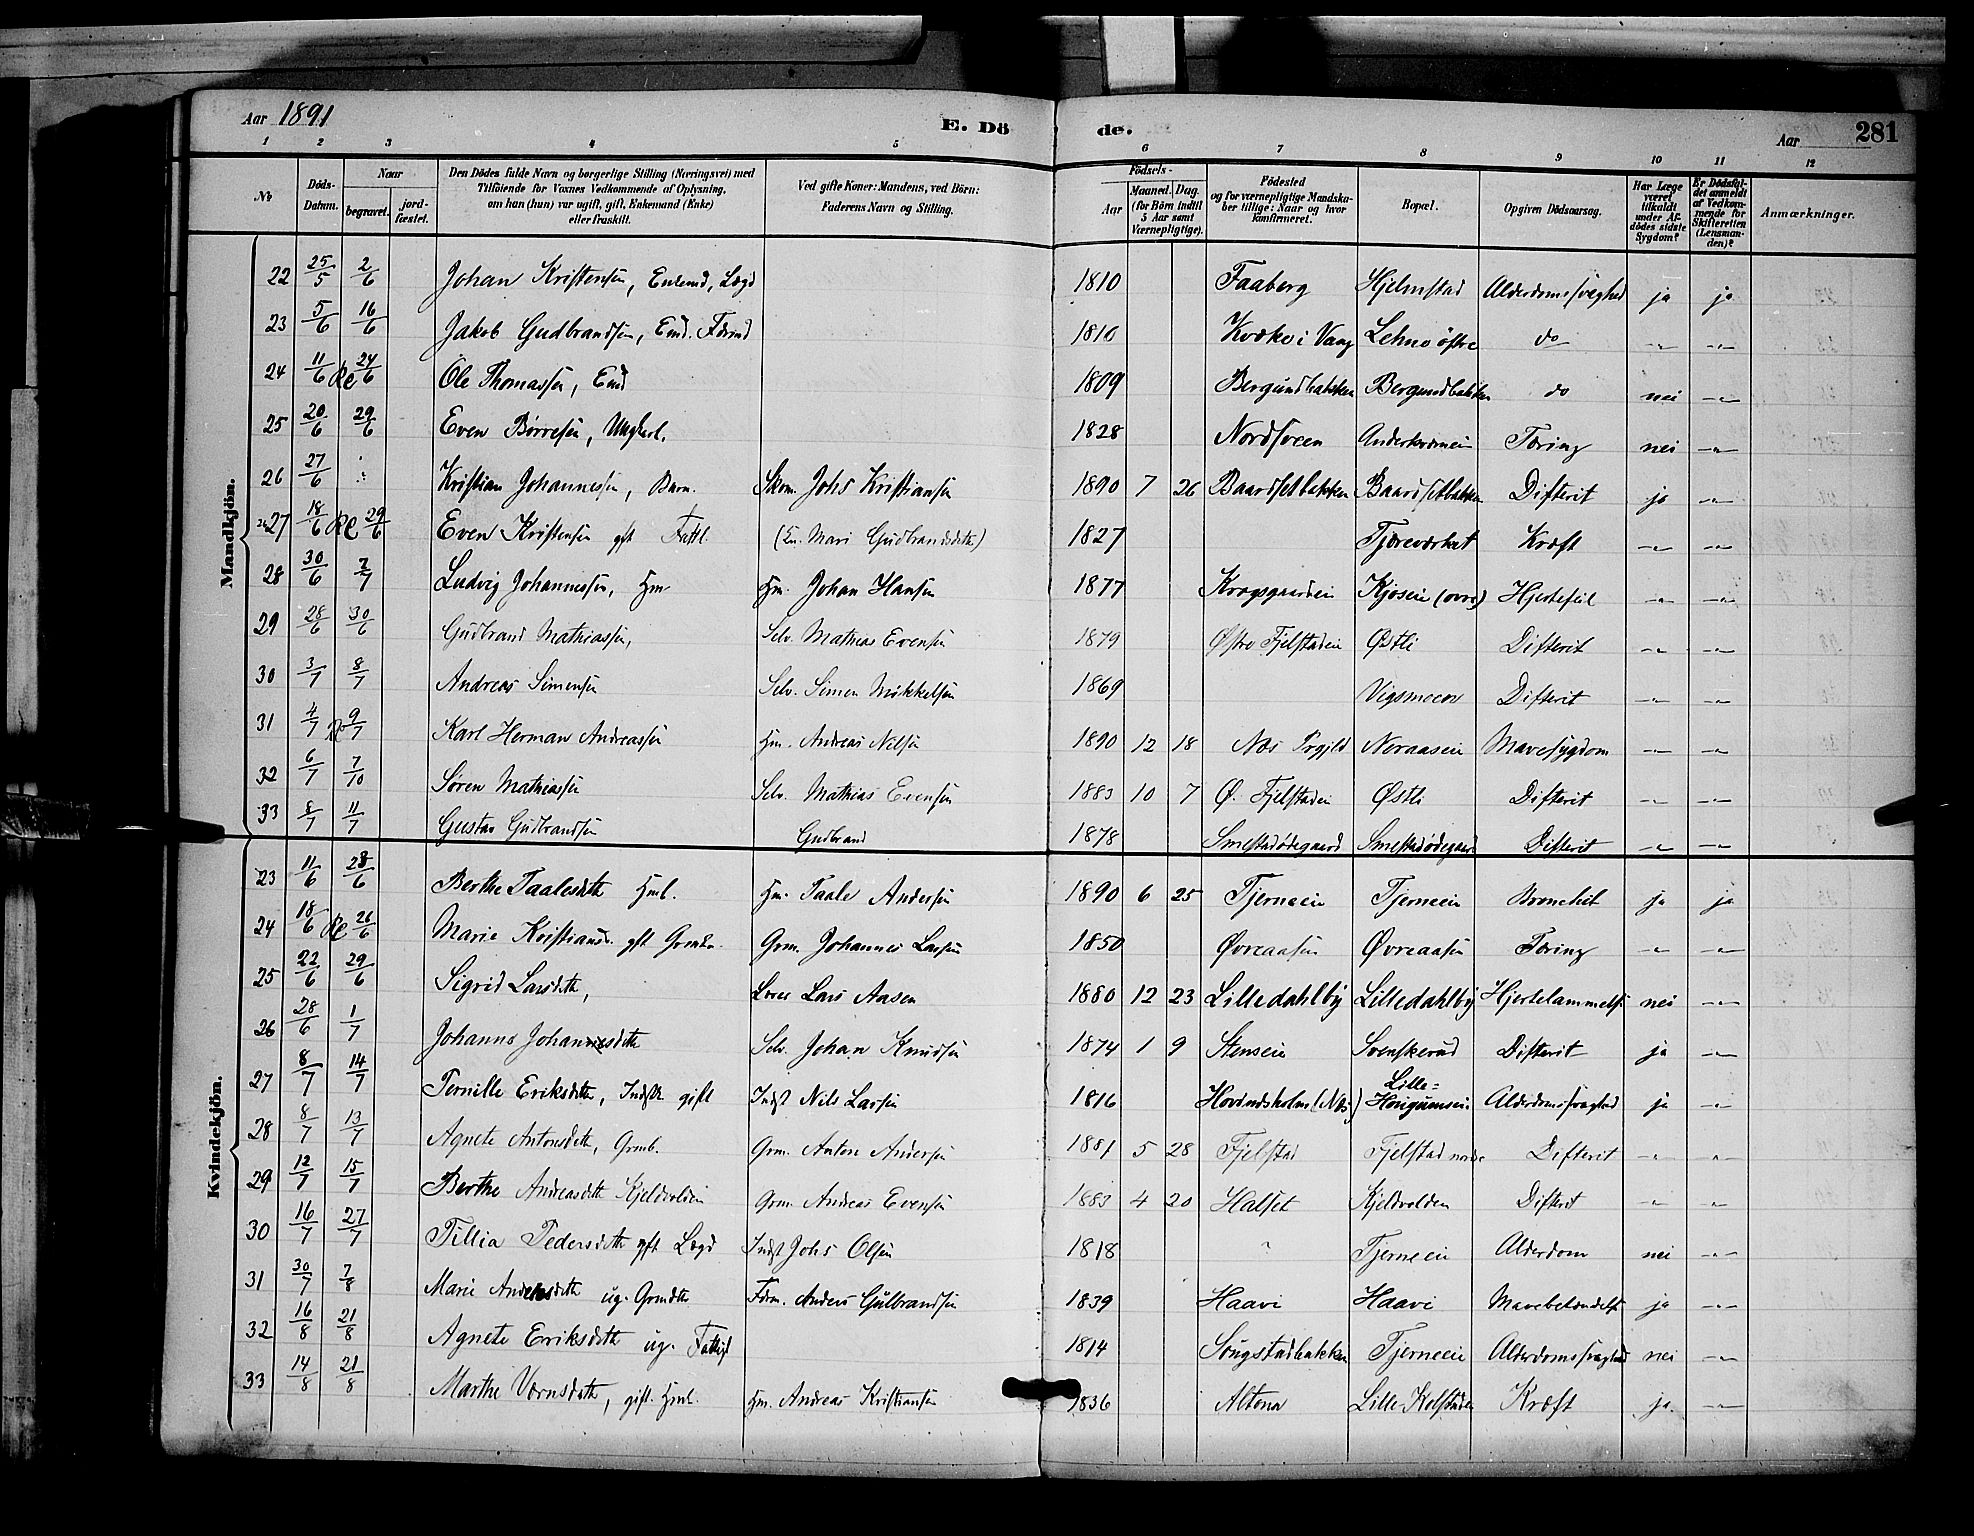 Aar 1891 E. Dö de. Aar 281
1 2 3 4 5 6 7 8 9 10 11 12
No Döds-Datum. Naar begravet. jord-fæstet. Den Dödes fulde Navn og borgerlige Stilling (Næringsvei) med Tilföiende for Voxnes Vedkommende af Oplysning, om han (hun) var ugift, gift, Enkemand (Enke) eller fraskilt. Ved gifte Koner: Mandens, ved Börn: Faderens Navn og Stilling. Födsels- Aar Maaned. Dag. (for Börn indtil 5 Aar samt Værnepligtige). Födested og for værnepligtige Mandskaber tillige: Naar og hvor konfirmeret. Bopæl. Opgiven Dödsaarsag. Har Læge været tilkaldt under Afdödes sidste Sygdom? Er Dödsfaldet anmeldt af Vedkommende for Skifteretten (Lensmanden)? Anmærkninger.
Mandkjön.
22 25/5 2/6 Johan Kristensen, Enkemd, Lægd 1810 Faaberg Hjelmstad Alderdomssvaghed ja ja
23 5/6 16/6 Jakob Gudbrandsen, Emd. 1810 Kvæke i Vang Lehne østre do
24 11/6 24/6 Ole Thomassen, Emd 1809 Bergundbakken Bergundbakken do nei
25 20/6 29/6 Even Børresen, Ungkarl. 1828 Nordsveen Tæring nei
26 27/6 Kristian Johannessen, Barn. Skom. Johs Kristiansen 1890 7 26 Baardsetbakken Baardsetbakken Difterit ja
27 18/6 29/6 Even Kristensen gft Fattl. (En. Mari Gudbrandsdatter) 1827 Tjæreværket Kræft
28 30/6 7/7 Ludvig Johannessen, Hm Hm. Johan Hansen 1877 Kragsgaardein Kjoseie (øvre) Hjertefeil
29 28/6 30/6 Gudbrand Mathiassen, Selv. Mathias Evensen 1879 Østre Fjelstadeie Østli Difterit
30 3/7 8/7 Andreas Simensen Selv. Simen Mikkelsen 1869 Difterit
31 4/7 9/7 Karl Herman Andreassen Hm. Andreas Nilsen 1890 12 18 Næs Prgjld Noraaseie Mavesygdom
32 6/7 7/10 Søren Mathiassen Selv. Mathias Evensen 1883 10 7 Ø. Fjelstadeie Østli Difterit
33 8/7 11/7 Gustav Gudbrandsen Gudbrand 1878 Smestadødegaard Smestadødegaard Difterit
Kvindekjön.
23 11/6 28/6 Berthe Paalesdtt Hmb. Hm. Paale Andersen 1890 6 25 Tjerneeie Tjerneeie Bronchit ja ja
24 18/6 26/6 Marie Kristiansd. gft Grmk. Grm. Johannes Larsen 1850 Øvreaasen Øvreaasen Tæring
25 22/6 29/6 Sigrid Larsdtt, Lars Aasen 1880 12 23 Lilledahlby Lilledahlby Hjertelammelse nei
26 28/6 1/7 Johanne Johannesdtt Selv. Johan Knudsen 1874 1 9 Stenseie Svenskerud Difterit ja
27 8/7 14/7 Pernille Eriksdtt, Indstk gift Indst Nils Larsen 1816 Hovindsholm (Næs) Lille= Alderdomssvaghed ja
28 8/7 13/7 Agnete Antonsdtt, Grmb. Grm. Anton Andersen 1881 5 28 Fjelstad Fjelstad nordre Difterit
29 12/7 15/7 Berthe Andreasdtt Kjeldvolden Grm. Andreas Evensen 1883 4 20 Halset Kjeldvolden Difterit
30 16/7 27/7 Tillia Pedersdtt gft Lægd Indst Johs Olsen 1818 " Tjerneeie Alderdom nei
31 30/7 7/8 Marie Andersdtt ug. Grmdtt Anders Gulbrandsen 1839 Haavi Haavi Mavebetændelse ja
32 16/8 21/8 Agnete Eriksdtt ug. Fattigl 1814 Sougstadbakken Tjerneeie Alderdomssvaghed nei
33 14/8 21/8 Marthe gift. Hmk. Hm. Andreas Kristiansen 1836 Altona Lille Kolstaden Kræft ja